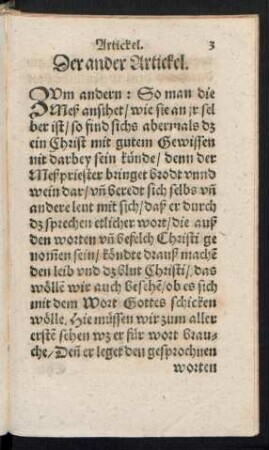 Artickel. 3
Der ander Artickel.
ZUm andern: So man die
Meß ansihet/ wie sie an jr sel
ber ist/ so find sichs abermals dz
ein Christ mit gutem Gewissen
nit darbey sein künde/ denn der
Meßpriester bringet brodt vnnd
wein dar/ vñ beredt sich selbs vñ
andere leut mit sich/ daß er durch
dz sprechen etlicher wort/ die auß
den worten vñ befelch Christi ge
nom̃en sein/ köndte drauß machẽ
den leib vnd dz blut Christi/ das
wöllẽ wir auch besehẽ/ ob es sich
mit dem Wort Gottes schicken
wölle. Hie müssen wir zum aller
erstẽ sehen wz er für wort brau-
che/ Deñ er leget den gesprochnen
worten